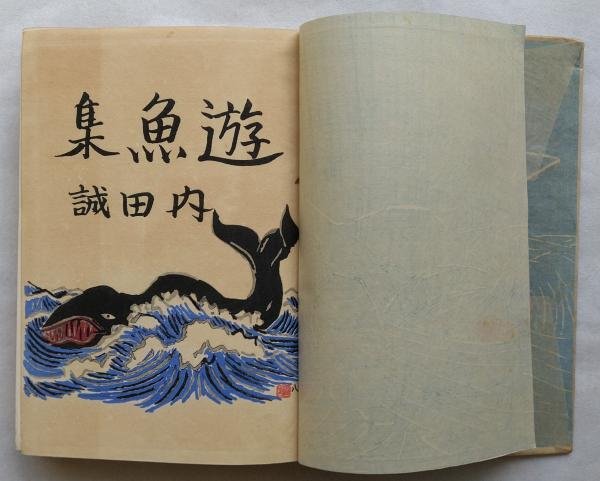 遊魚集
内田誠
八